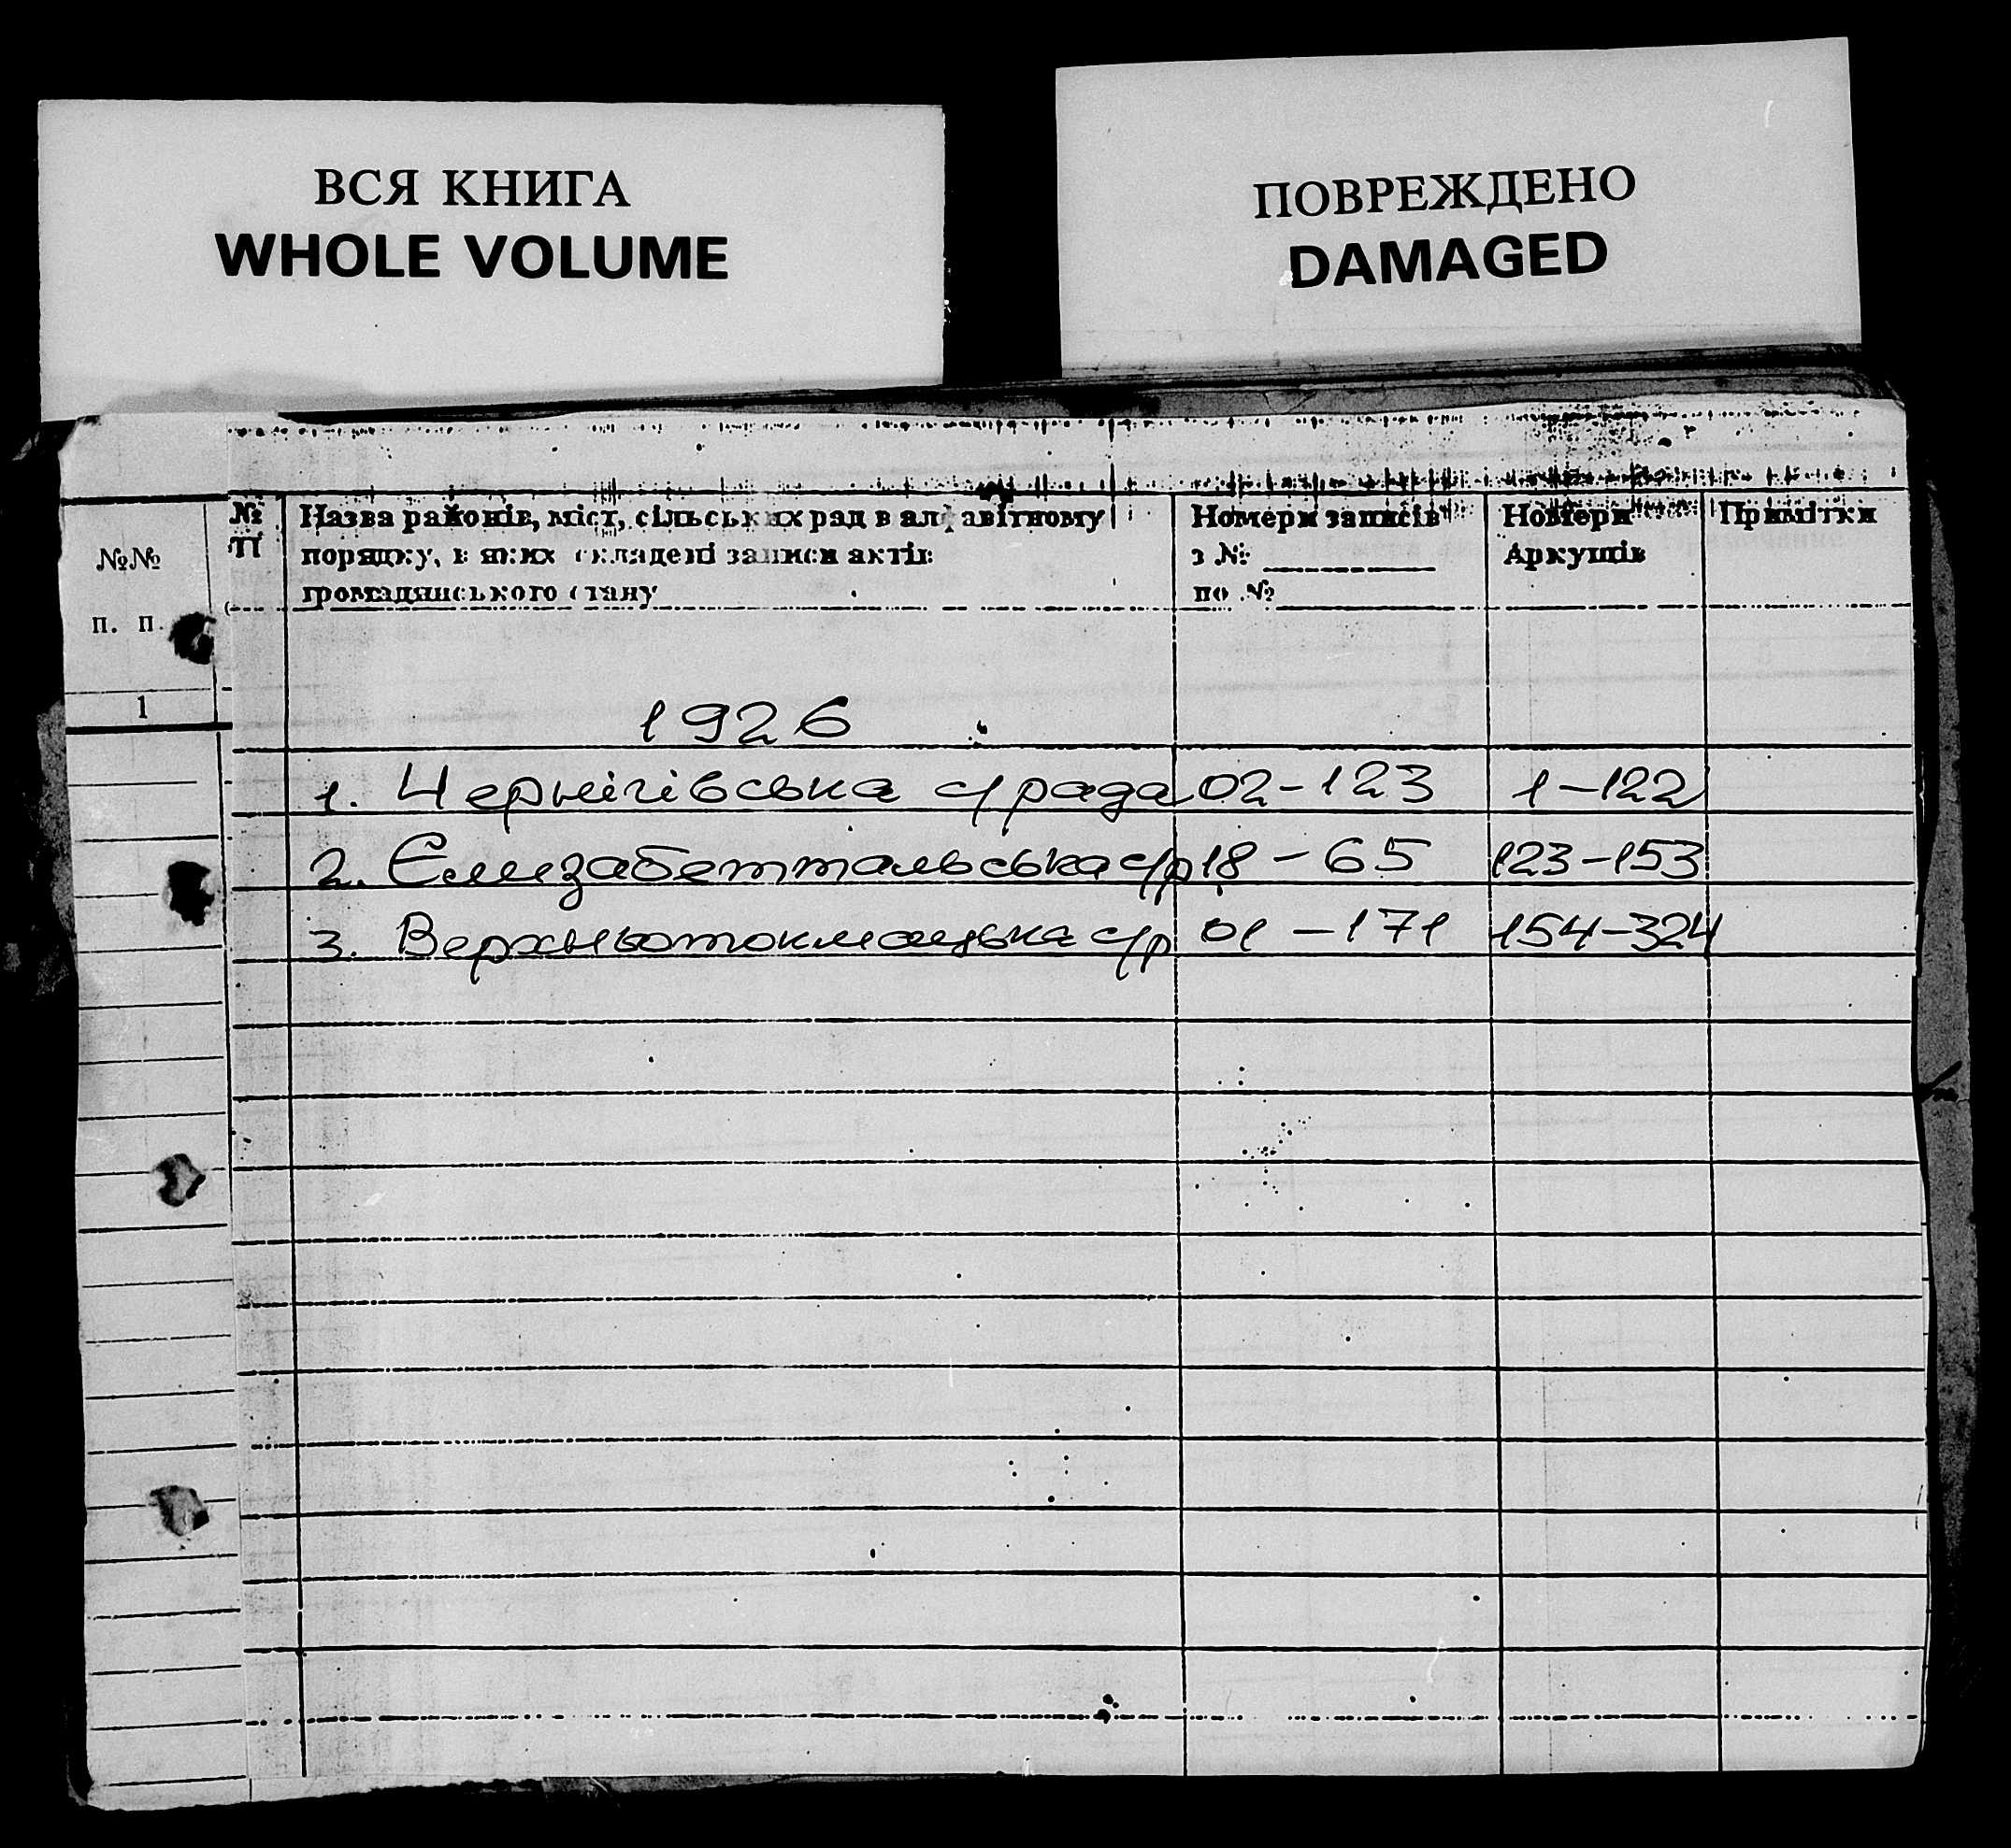 ВСЯ КНИГА
WHOLE VOLUME
ПОВРЕЖДЕНО
DAMAGED
№№
п. п.
1
№ П Назва районів, міст, сільських рад в алфавітному Номери записів Номери Примітки
порядку, в яких складені записи актів з № Аркушів
громадянського стану по №
1926
1. Чернігівська с/рада 02-123 1-122
2. Єлизабеттальська с/р 18-65 123-153
3. Верхньотокмацька с/р 01-171 154-324